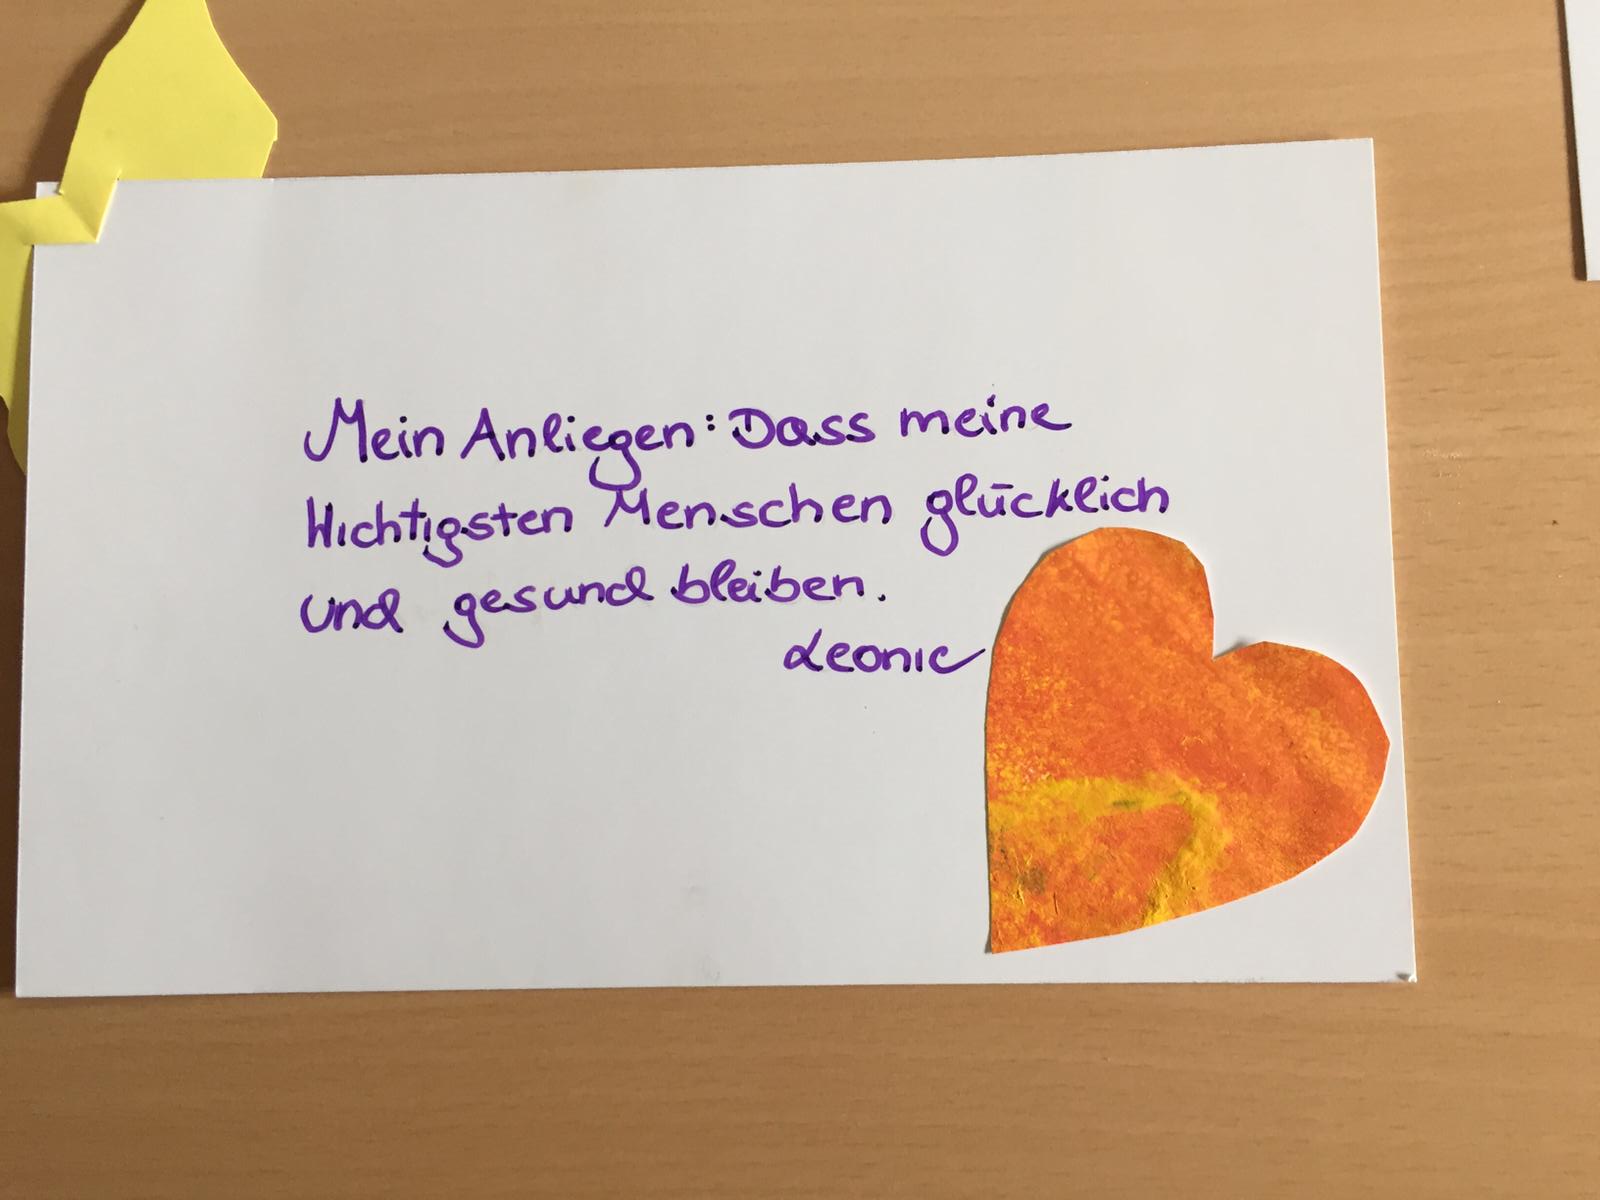 Mein Anliegen: Dass meine
Wichtigsten Menschen glücklich
und gesund bleiben.
Leonie